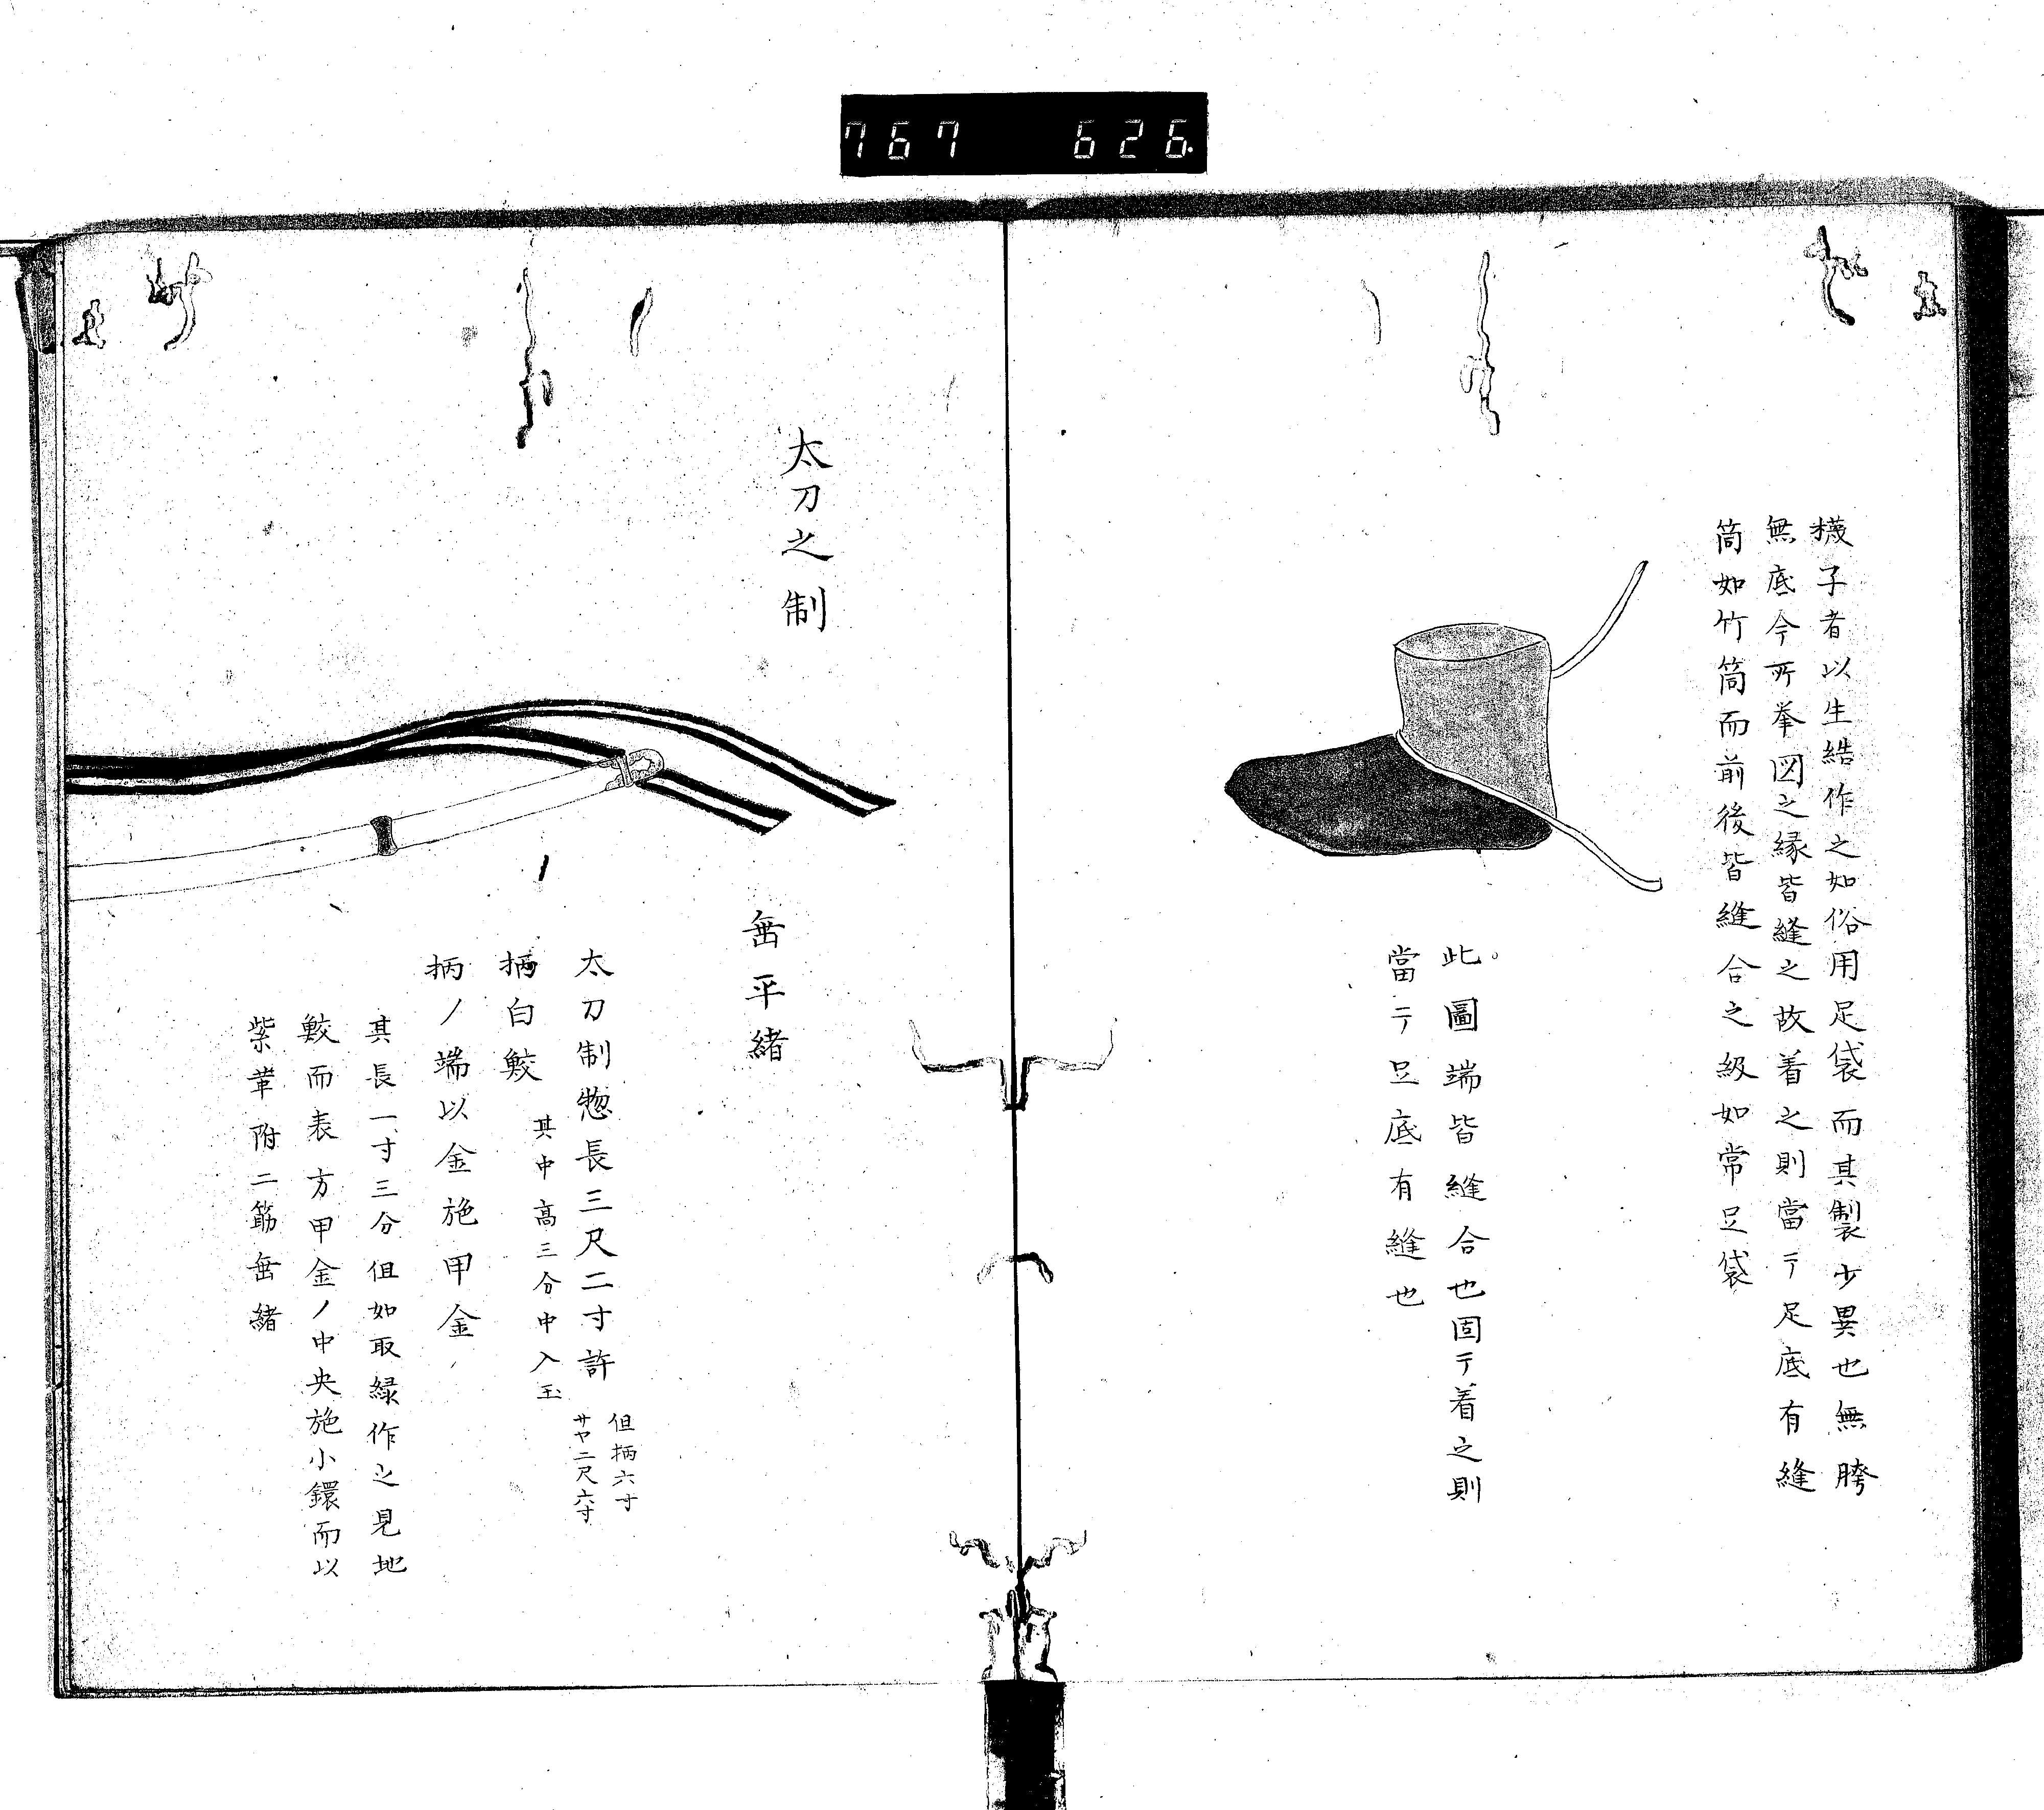 767 626.
襪子者以生絹作之如俗用足袋而其製少異也無胯
無底今所挙図之縁皆縫之故着之則當テ足底有縫
筒如竹筒而前後皆縫合之級如常足袋
此圖端皆縫合也固テ着之則
當テ足底有縫也
太刀之制
垂平緒
太刀制惣長三尺二寸許
但柄六寸
サヤ二尺六寸
柄白鮫
其中高三分中入玉
柄ノ端以金施甲金
其長一寸三分但如取縁作之見地
鮫而表方甲金ノ中央施小鐶而以
紫革附二筋垂緒